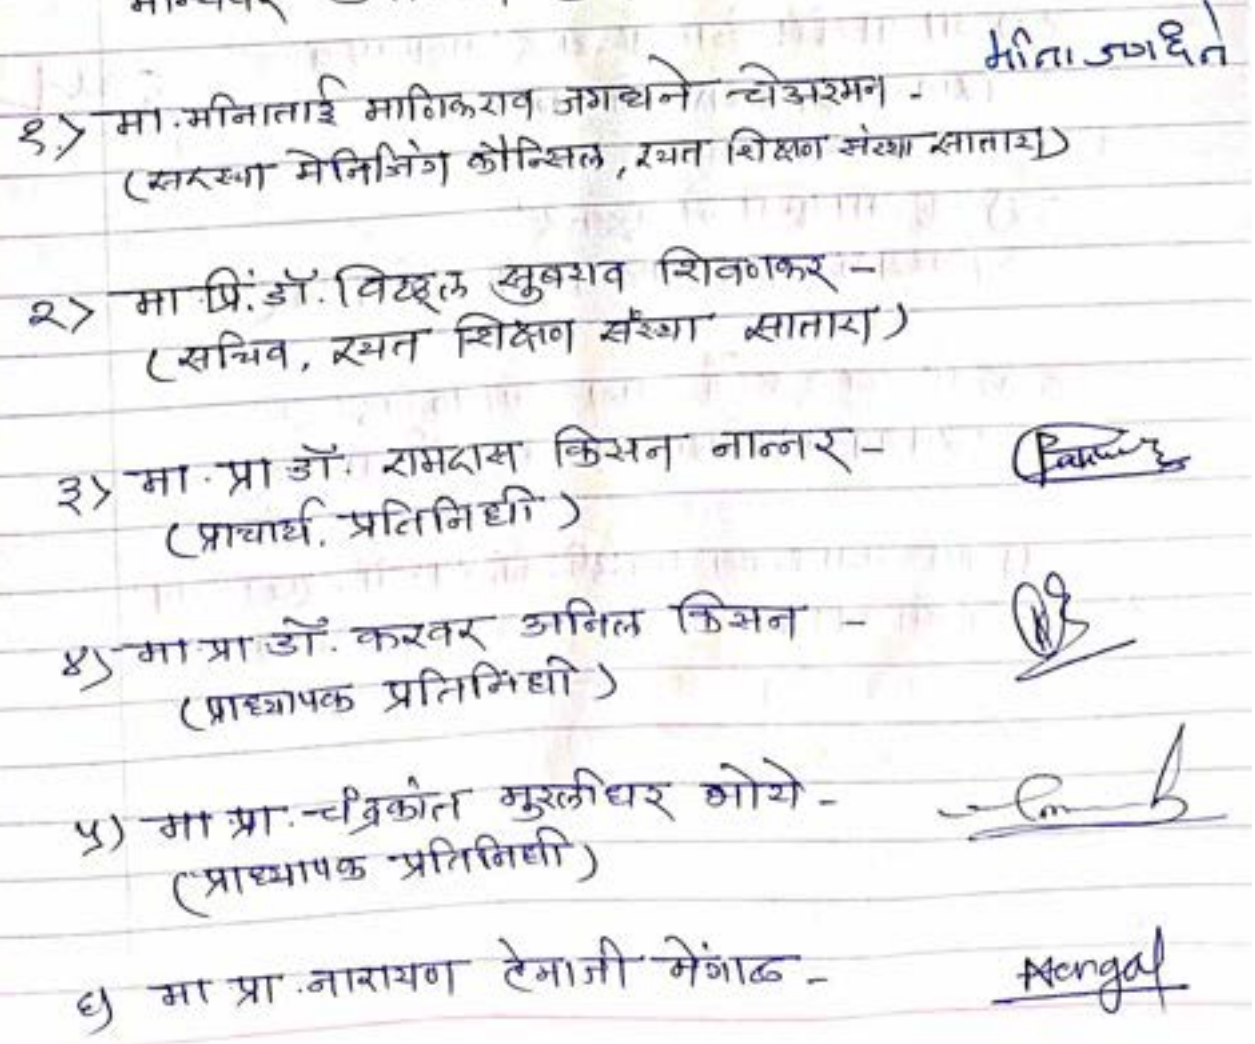 मीना जगधने
१.> मा. मीनाताई माणिकराव जगधने चेअरमन -
(सदस्या मेनिजिंग कौन्सिल, रयत शिक्षण संस्था सातारा)
२> मा प्रिं. डॉ. विठ्ठल सुबराव शिवणकर -
(सचिव, रयत शिक्षण संस्था सातारा)
३> मा. प्रा डॉ. रामदास किसन नान्नर -
(प्राचार्य. प्रतिनिधी)
४) मा प्रा डॉ. करवर अनिल किसन -
(प्राध्यापक प्रतिनिधी)
५) मा प्रा. चंद्रकांत मुरलीधर भोये -
(प्राध्यापक प्रतिनिधी)
६) मा प्रा. नारायण हेमाजी मेंगाळ -
Mengal